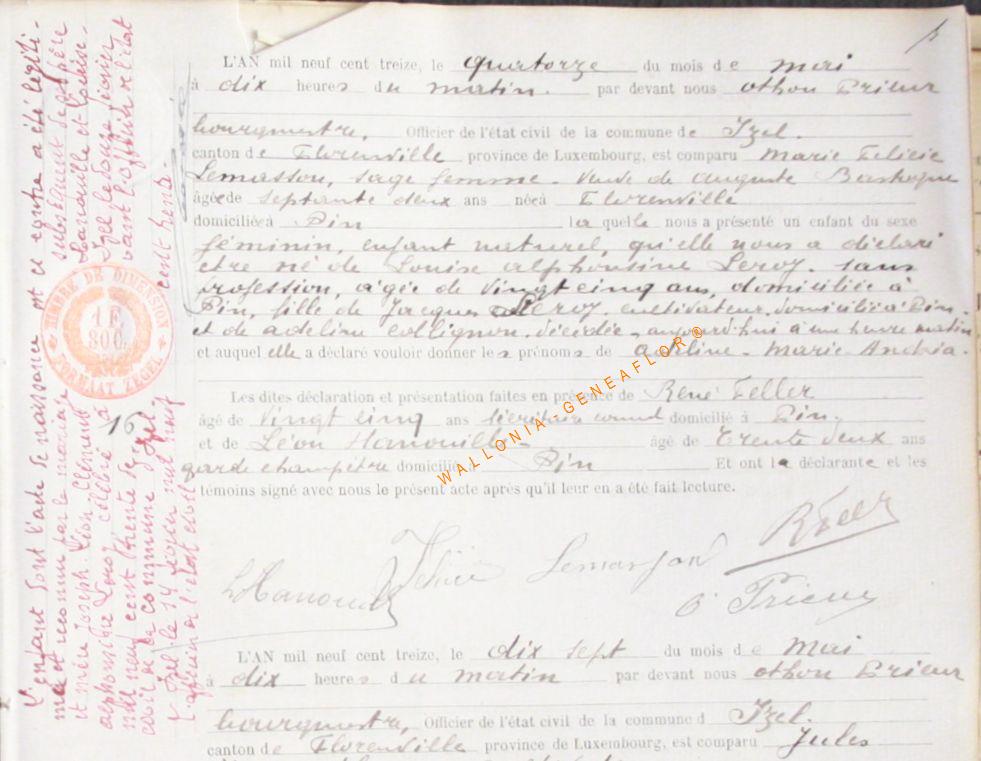 L'AN mil neuf cent treize, le quatorze du mois de mai
à dix heures du matin. par devant nous Othon Prieur
bourgmestre, Officier de l'état civil de la commune de Izel.
canton de Florenville province de Luxembourg, est comparu Marie Felicie
Lemasson, sage femme. veuve de Auguste
âgée de septante deux ans née à Florenville
domiciliée à Pin laquelle nous a présenté un enfant du sexe
féminin, enfant naturel, qu'elle nous a déclaré
etre né de Louise Alphonsine Leroy. sans
profession, agée de vingt cinq ans, domiciliée à
Pin, fille de Jacques Leroy. cultivateur domicilié à Pin,
et de Adeline Collignon. décédée. aujourd'hui à une heure matin
et auquel elle a déclaré vouloir donner les prénoms de Adeline - Marie
Les dites déclaration et présentation faites en présence de René Feller
âgé de vingt cinq ans domicilié à Pin.
et de Léon Hanouille âgé de Trente deux ans
garde champêtre domicilié à Pin Et ont la déclarante et les
témoins signé avec nous le présent acte après qu'il leur en a été fait lecture.
RFeller
Felicie Lemasson
LHanouille
O Prieur
L'enfant dont l'acte de naissance est ci contre a été légiti-
mé et reconnu par le mariage subséquent de ses père
et mère Joseph Léon Clément Hanouille et Louise
Alphonsine Leroy célébré à Izel le douze janvier
mil neuf cent trente devant l'officier de l'état
civil de la commune d'Izel.
Izel le 14 janvier mil neuf cent trente.
L'officier de l'état civil
16
TIMBRE DE DIMENSION
1 F.
80 C.
FORMAAT ZEGEL
WALLONIA-GENEAFLOR®
L'AN mil neuf cent treize, le dix sept du mois de Mai
à dix heures du matin par devant nous Othon Prieur
bourgmestre, Officier de l'état civil de la commune d Izel.
canton de Florenville province de Luxembourg, est comparu Jules